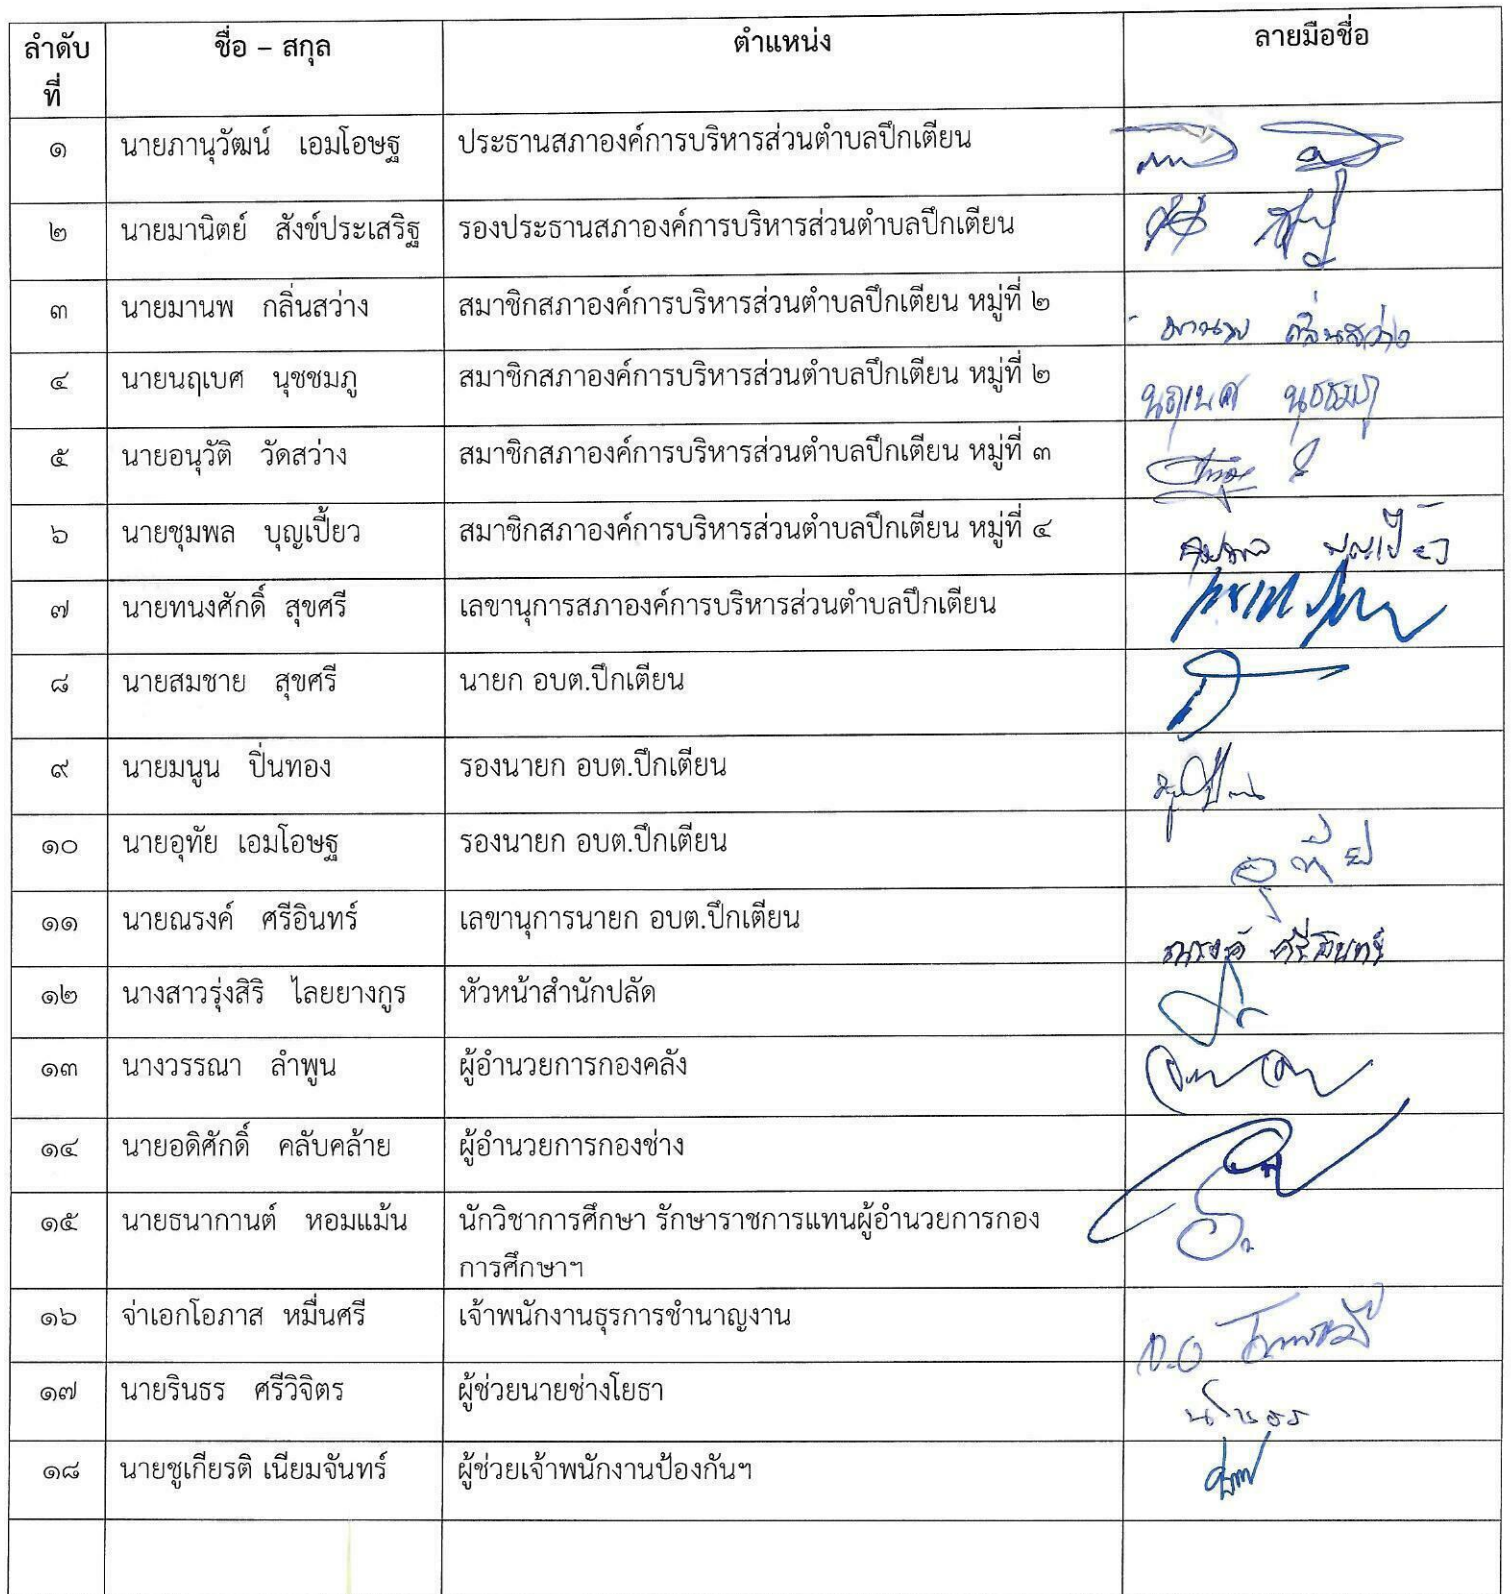 ลำดับ ชื่อ – สกุล ตำแหน่ง ลายมือชื่อ
ที่
๑ นายภานุวัฒน์ เอมโอษฐ ประธานสภาองค์การบริหารส่วนตำบลปึกเตียน
๒ นายมานิตย์ สังข์ประเสริฐ รองประธานสภาองค์การบริหารส่วนตำบลปึกเตียน
๓ นายมานพ กลิ่นสว่าง สมาชิกสภาองค์การบริหารส่วนตำบลปึกเตียน หมู่ที่ ๒ มานพ กลิ่นสว่าง
๔ นายนฤเบศ นุชชมภู สมาชิกสภาองค์การบริหารส่วนตำบลปึกเตียน หมู่ที่ ๒ นฤเบศ นุชชมภู
๕ นายอนุวัติ วัดสว่าง สมาชิกสภาองค์การบริหารส่วนตำบลปึกเตียน หมู่ที่ ๓
๖ นายชุมพล บุญเปี้ยว สมาชิกสภาองค์การบริหารส่วนตำบลปึกเตียน หมู่ที่ ๔ ชุมพล บุญเปี้ยว
๗ นายทนงศักดิ์ สุขศรี เลขานุการสภาองค์การบริหารส่วนตำบลปึกเตียน
๘ นายสมชาย สุขศรี นายก อบต.ปึกเตียน
๙ นายมนูน ปิ่นทอง รองนายก อบต.ปึกเตียน
๑๐ นายอุทัย เอมโอษฐ รองนายก อบต.ปึกเตียน อุทัย
๑๑ นายณรงค์ ศรีอินทร์ เลขานุการนายก อบต.ปึกเตียน ณรงค์ ศรีอินทร์
๑๒ นางสาวรุ่งสิริ ไลยยางกูร หัวหน้าสำนักปลัด
๑๓ นางวรรณา ลำพูน ผู้อำนวยการกองคลัง
๑๔ นายอดิศักดิ์ คลับคล้าย ผู้อำนวยการกองช่าง
๑๕ นายธนากานต์ หอมแม้น นักวิชาการศึกษา รักษาราชการแทนผู้อำนวยการกอง
การศึกษาฯ
๑๖ จ่าเอกโอภาส หมื่นศรี เจ้าพนักงานธุรการชำนาญงาน
๑๗ นายรินธร ศรีวิจิตร ผู้ช่วยนายช่างโยธา
๑๘ นายชูเกียรติ เนียมจันทร์ ผู้ช่วยเจ้าพนักงานป้องกันฯ